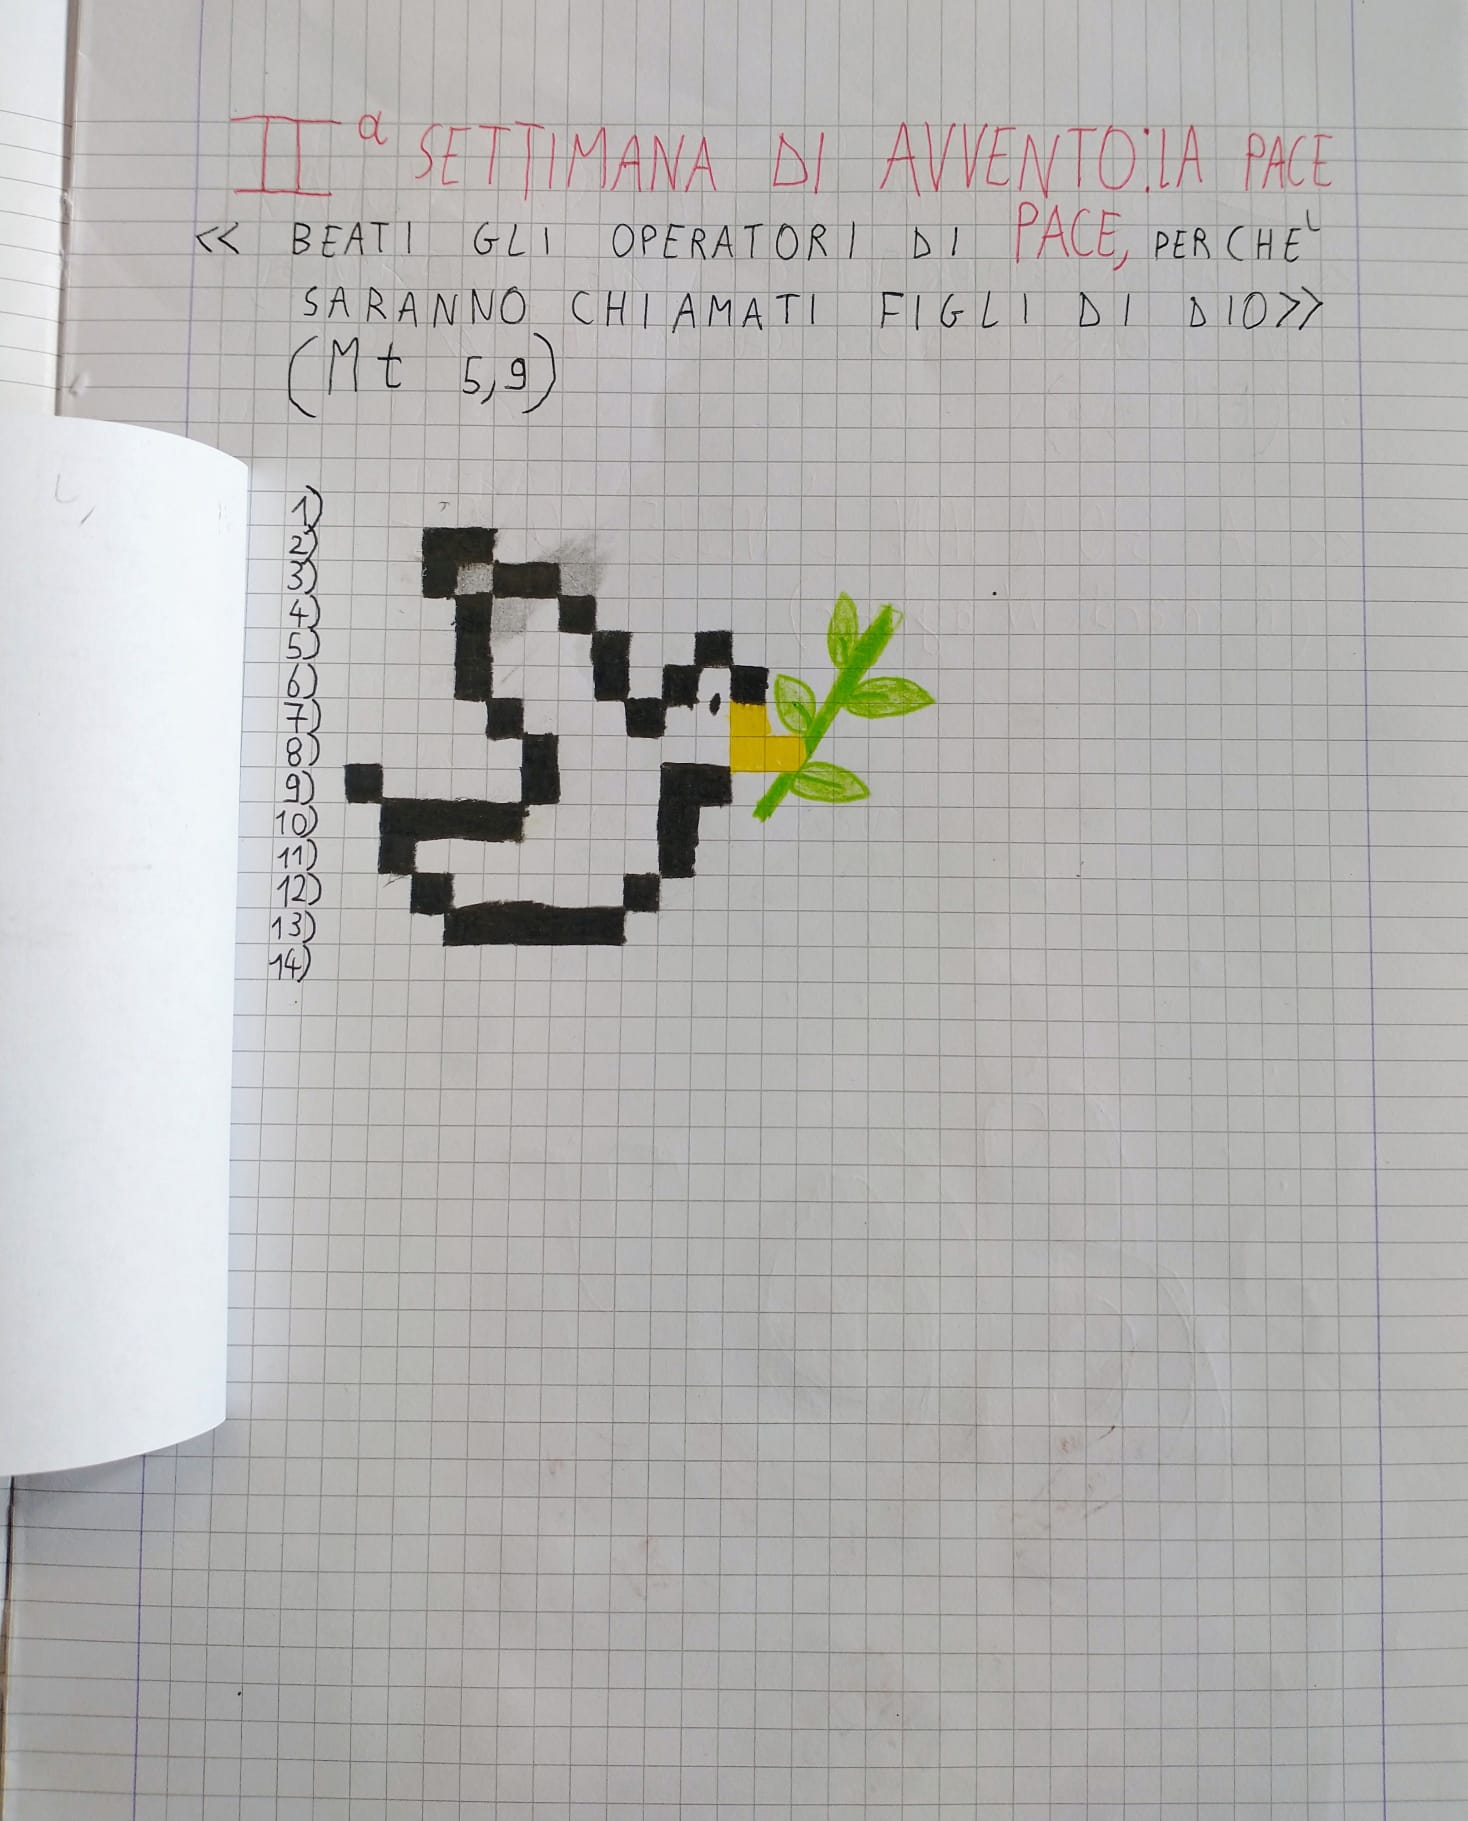 IIª SETTIMANA DI AVVENTO: LA PACE
<< BEATI GLI OPERATORI DI PACE, PERCHE'
SARANNO CHIAMATI FIGLI DI DIO>>
(Mt 5,9)
1)
2)
3)
4)
5)
6)
7)
8)
9)
10)
11)
12)
13)
14)